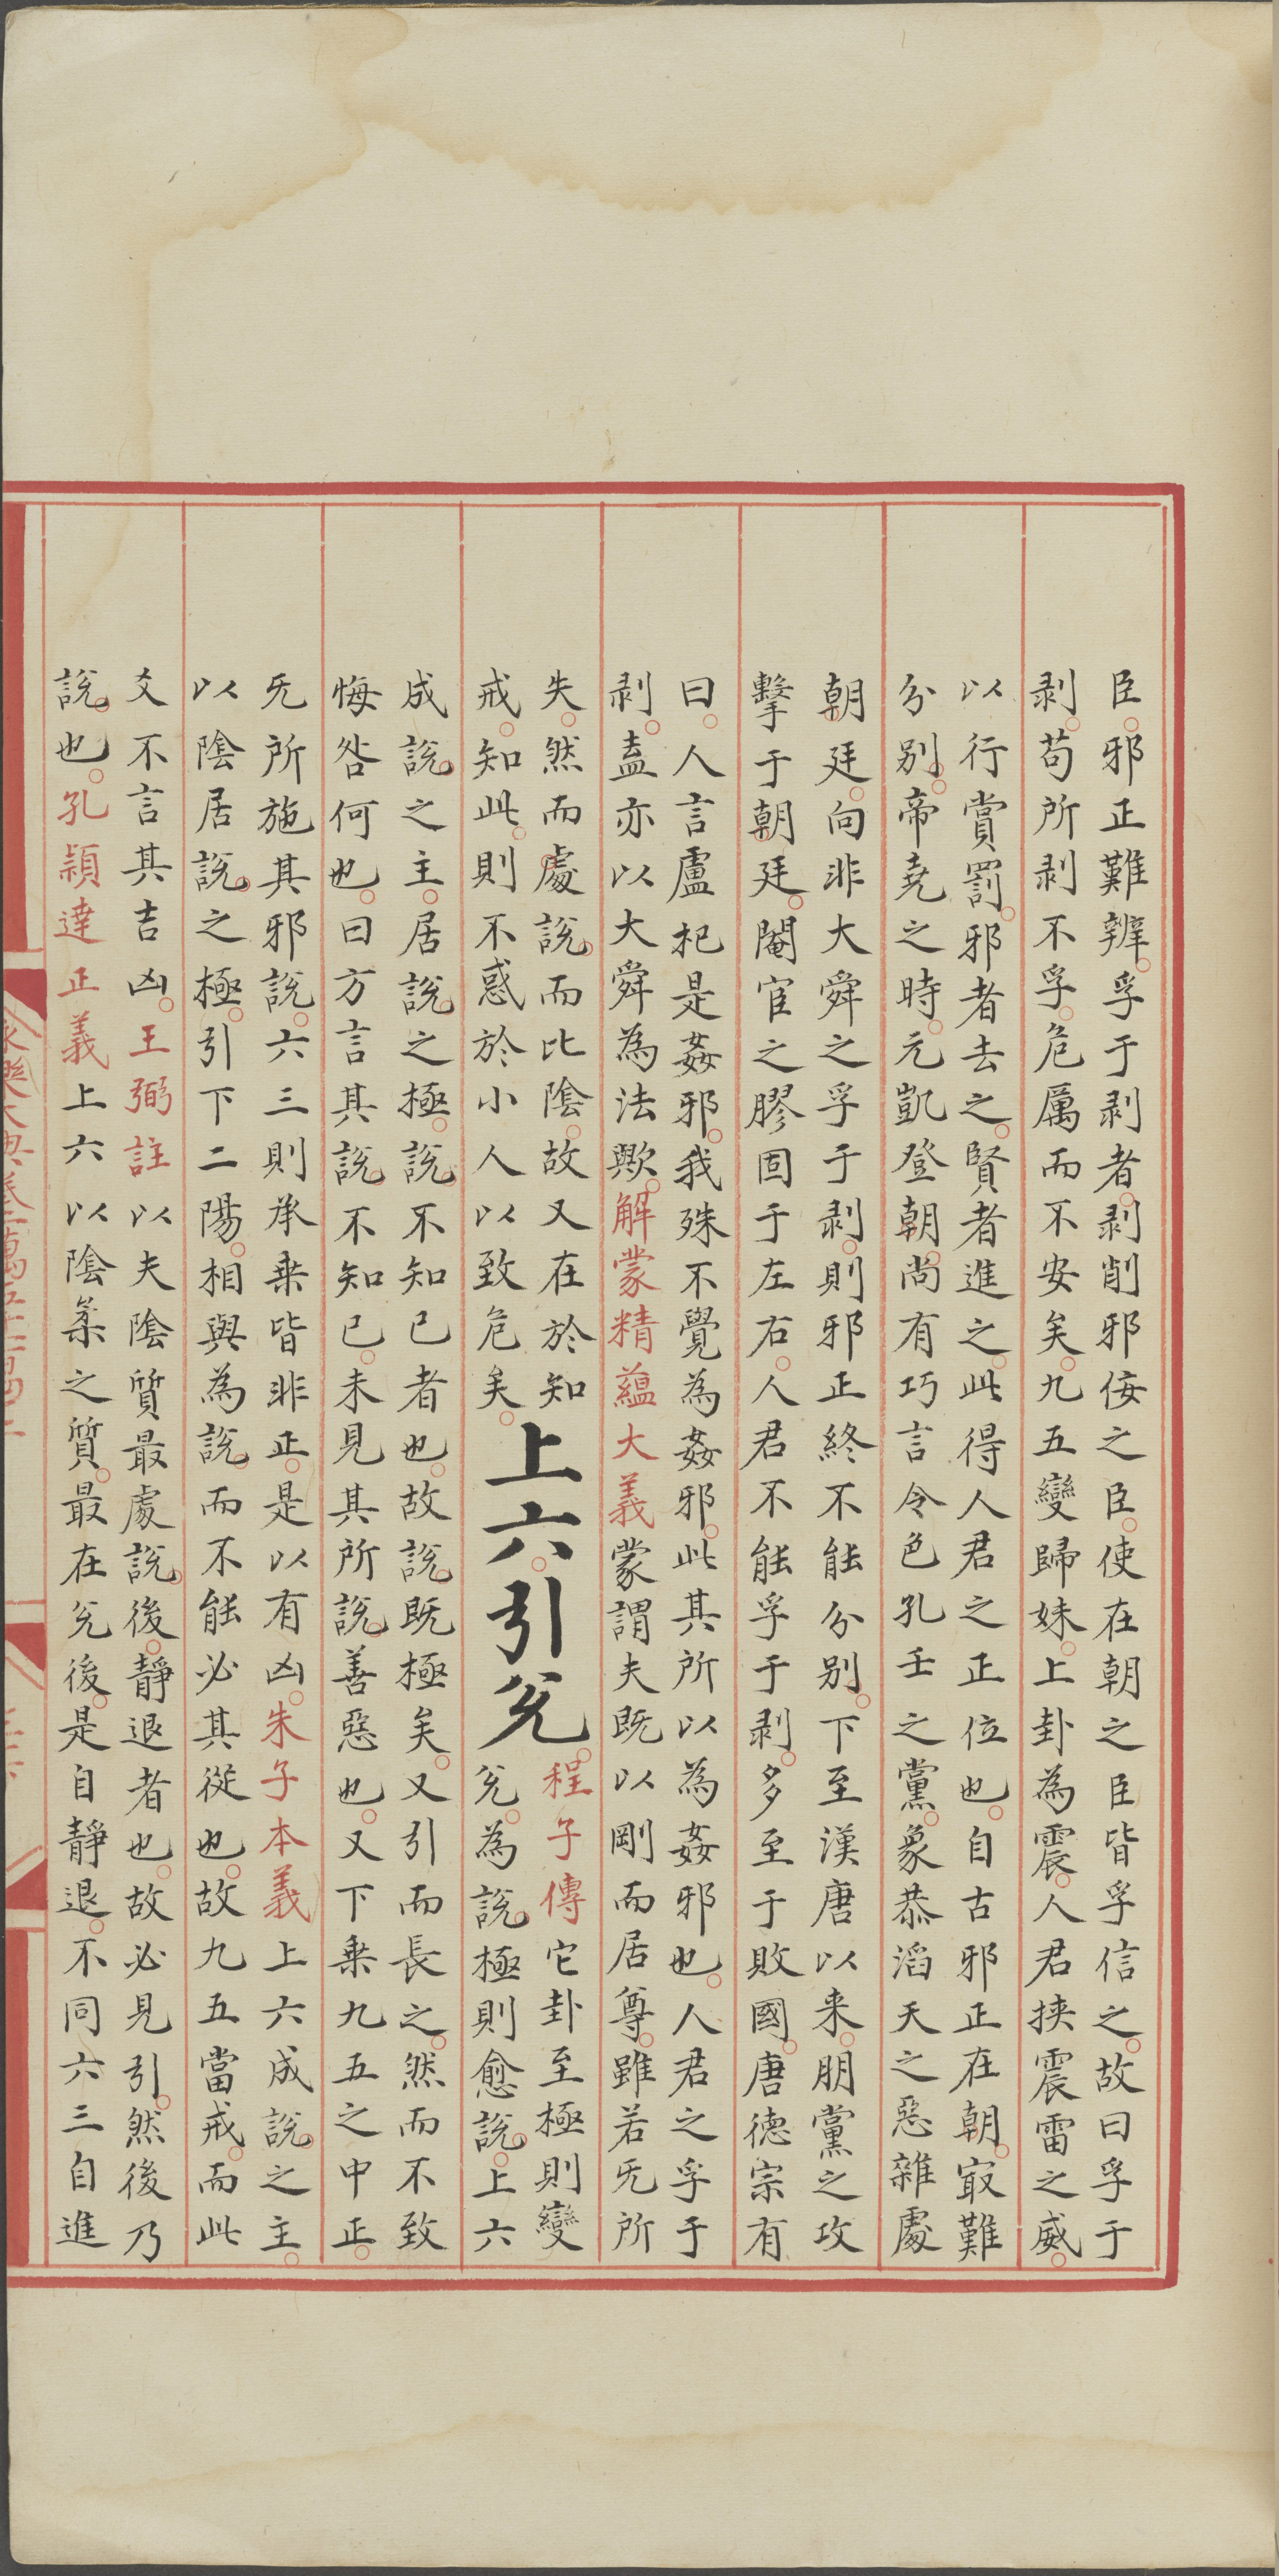 臣邪正難辨孚于剥者剥削邪侫之臣使在朝之臣皆孚信之故曰孚于
剥苟所剥不孚危厲而不安矣九五變歸妹上卦為震人君挟震雷之威
以行賞罰邪者去之賢者進之此得人君之正位也自古邪正在朝㝡難
分别帝堯之時元凱登朝尚有巧言令色孔壬之黨象恭滔天之惡雜處
朝廷向非大舜之孚于剥則邪正終不能分别下至漢唐以来朋黨之攻
擊于朝廷閹官之膠固于左右人君不能孚于剥多至于敗國唐德宗有
曰人言盧杞是姦邪我殊不覺為姦邪此其所以為姦邪也人君之孚于
剥盍亦以大舜為法歟解蒙精藴大義蒙謂夫既以剛而居尊雖若旡所
失然而處說而比隂故又在於知
戒知此則不惑於小人以致危矣
上六引兊
程子傳它卦至極則變
兊為說極則愈說上六
成說之主居說之極說不知已者也故說既極矣又引而長之然而不致
悔咎何也曰方言其說不知已未見其所說善惡也又下乗九五之中正
旡所施其邪說六三則承乗皆非正是以有凶朱子本義上六成說之主
以隂居說之極引下二陽相與為說而不能必其從也故九五當戒而此
爻不言其吉凶王弼註以夫隂質最處說後靜退者也故必見引然後乃
說也孔頴達正義上六以隂柔之質最在兊後是自靜退不同六三自進